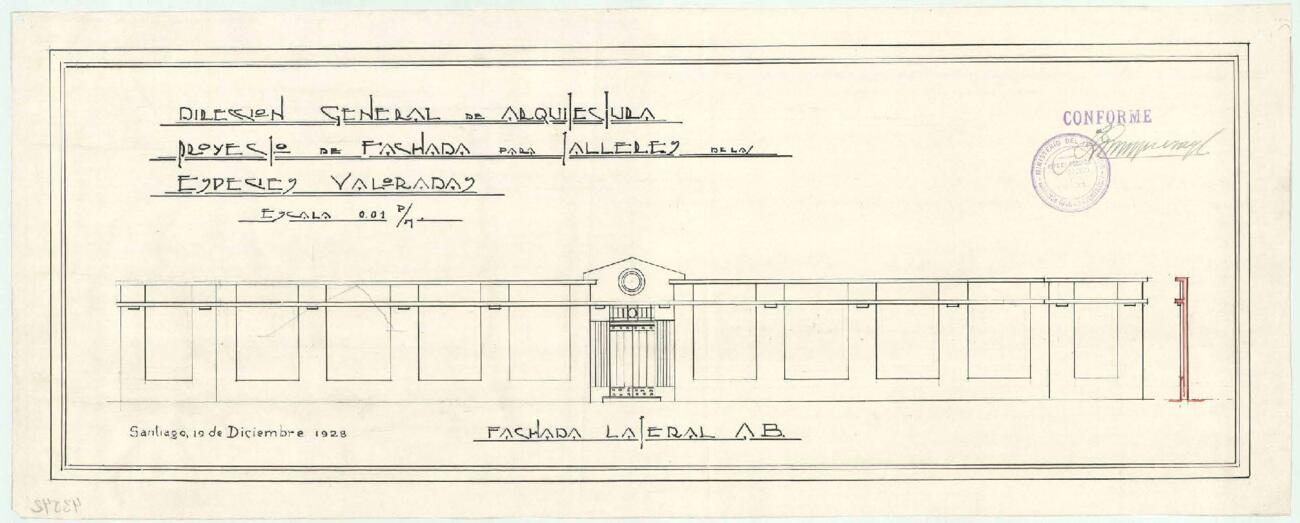 DIRECCION GENERAL DE ARQUITECTURA
PROYECTO DE FACHADA PARA TALLERES DE LAS
ESPECIES VALORADAS
ESCALA 0.01 P/M.
CONFORME
MINISTERIO DEL
Santiago, 10 de Diciembre 1928
FACHADA LATERAL A B.
43542